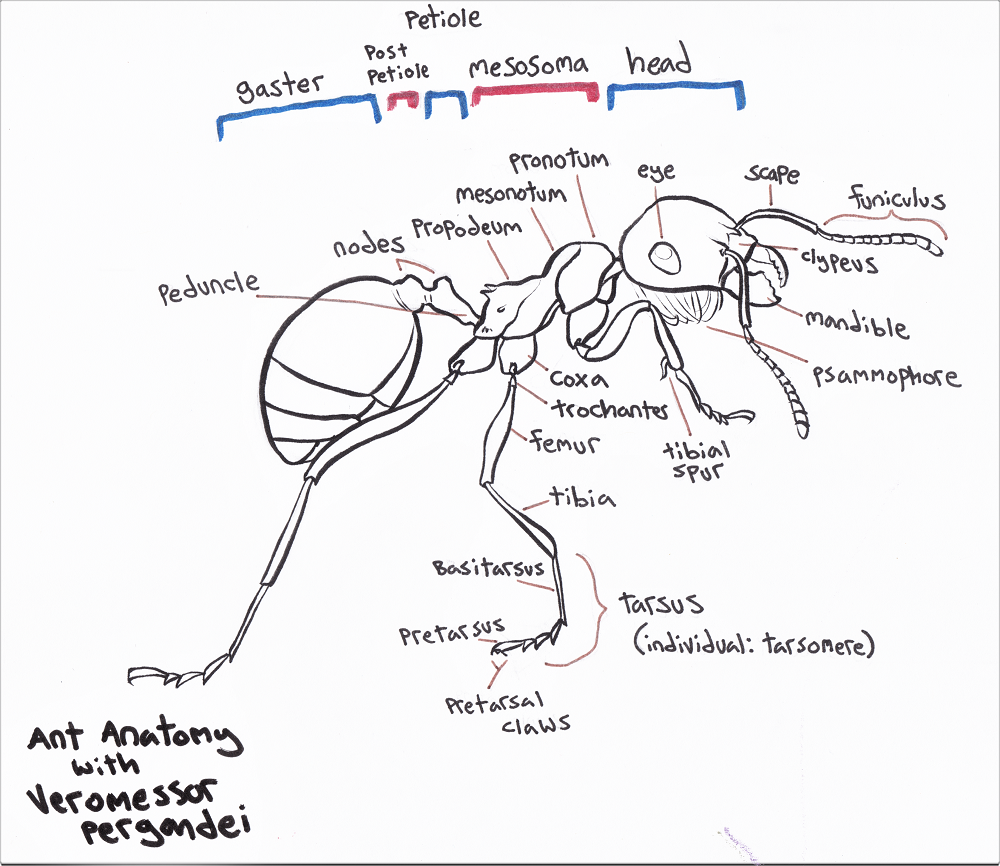 Petiole
Post
Petiole
gaster
mesosoma
head
pronotum
eye
scape
funiculus
mesonotum
Propodeum
nodes
Peduncle
clypeus
mandible
Psammophore
coxa
trochanter
femur
tibial
spur
tibia
Basitarsus
tarsus
(individual: tarsomere)
Pretarsus
Pretarsal
claws
Ant Anatomy
with
Veromessor
pergandei